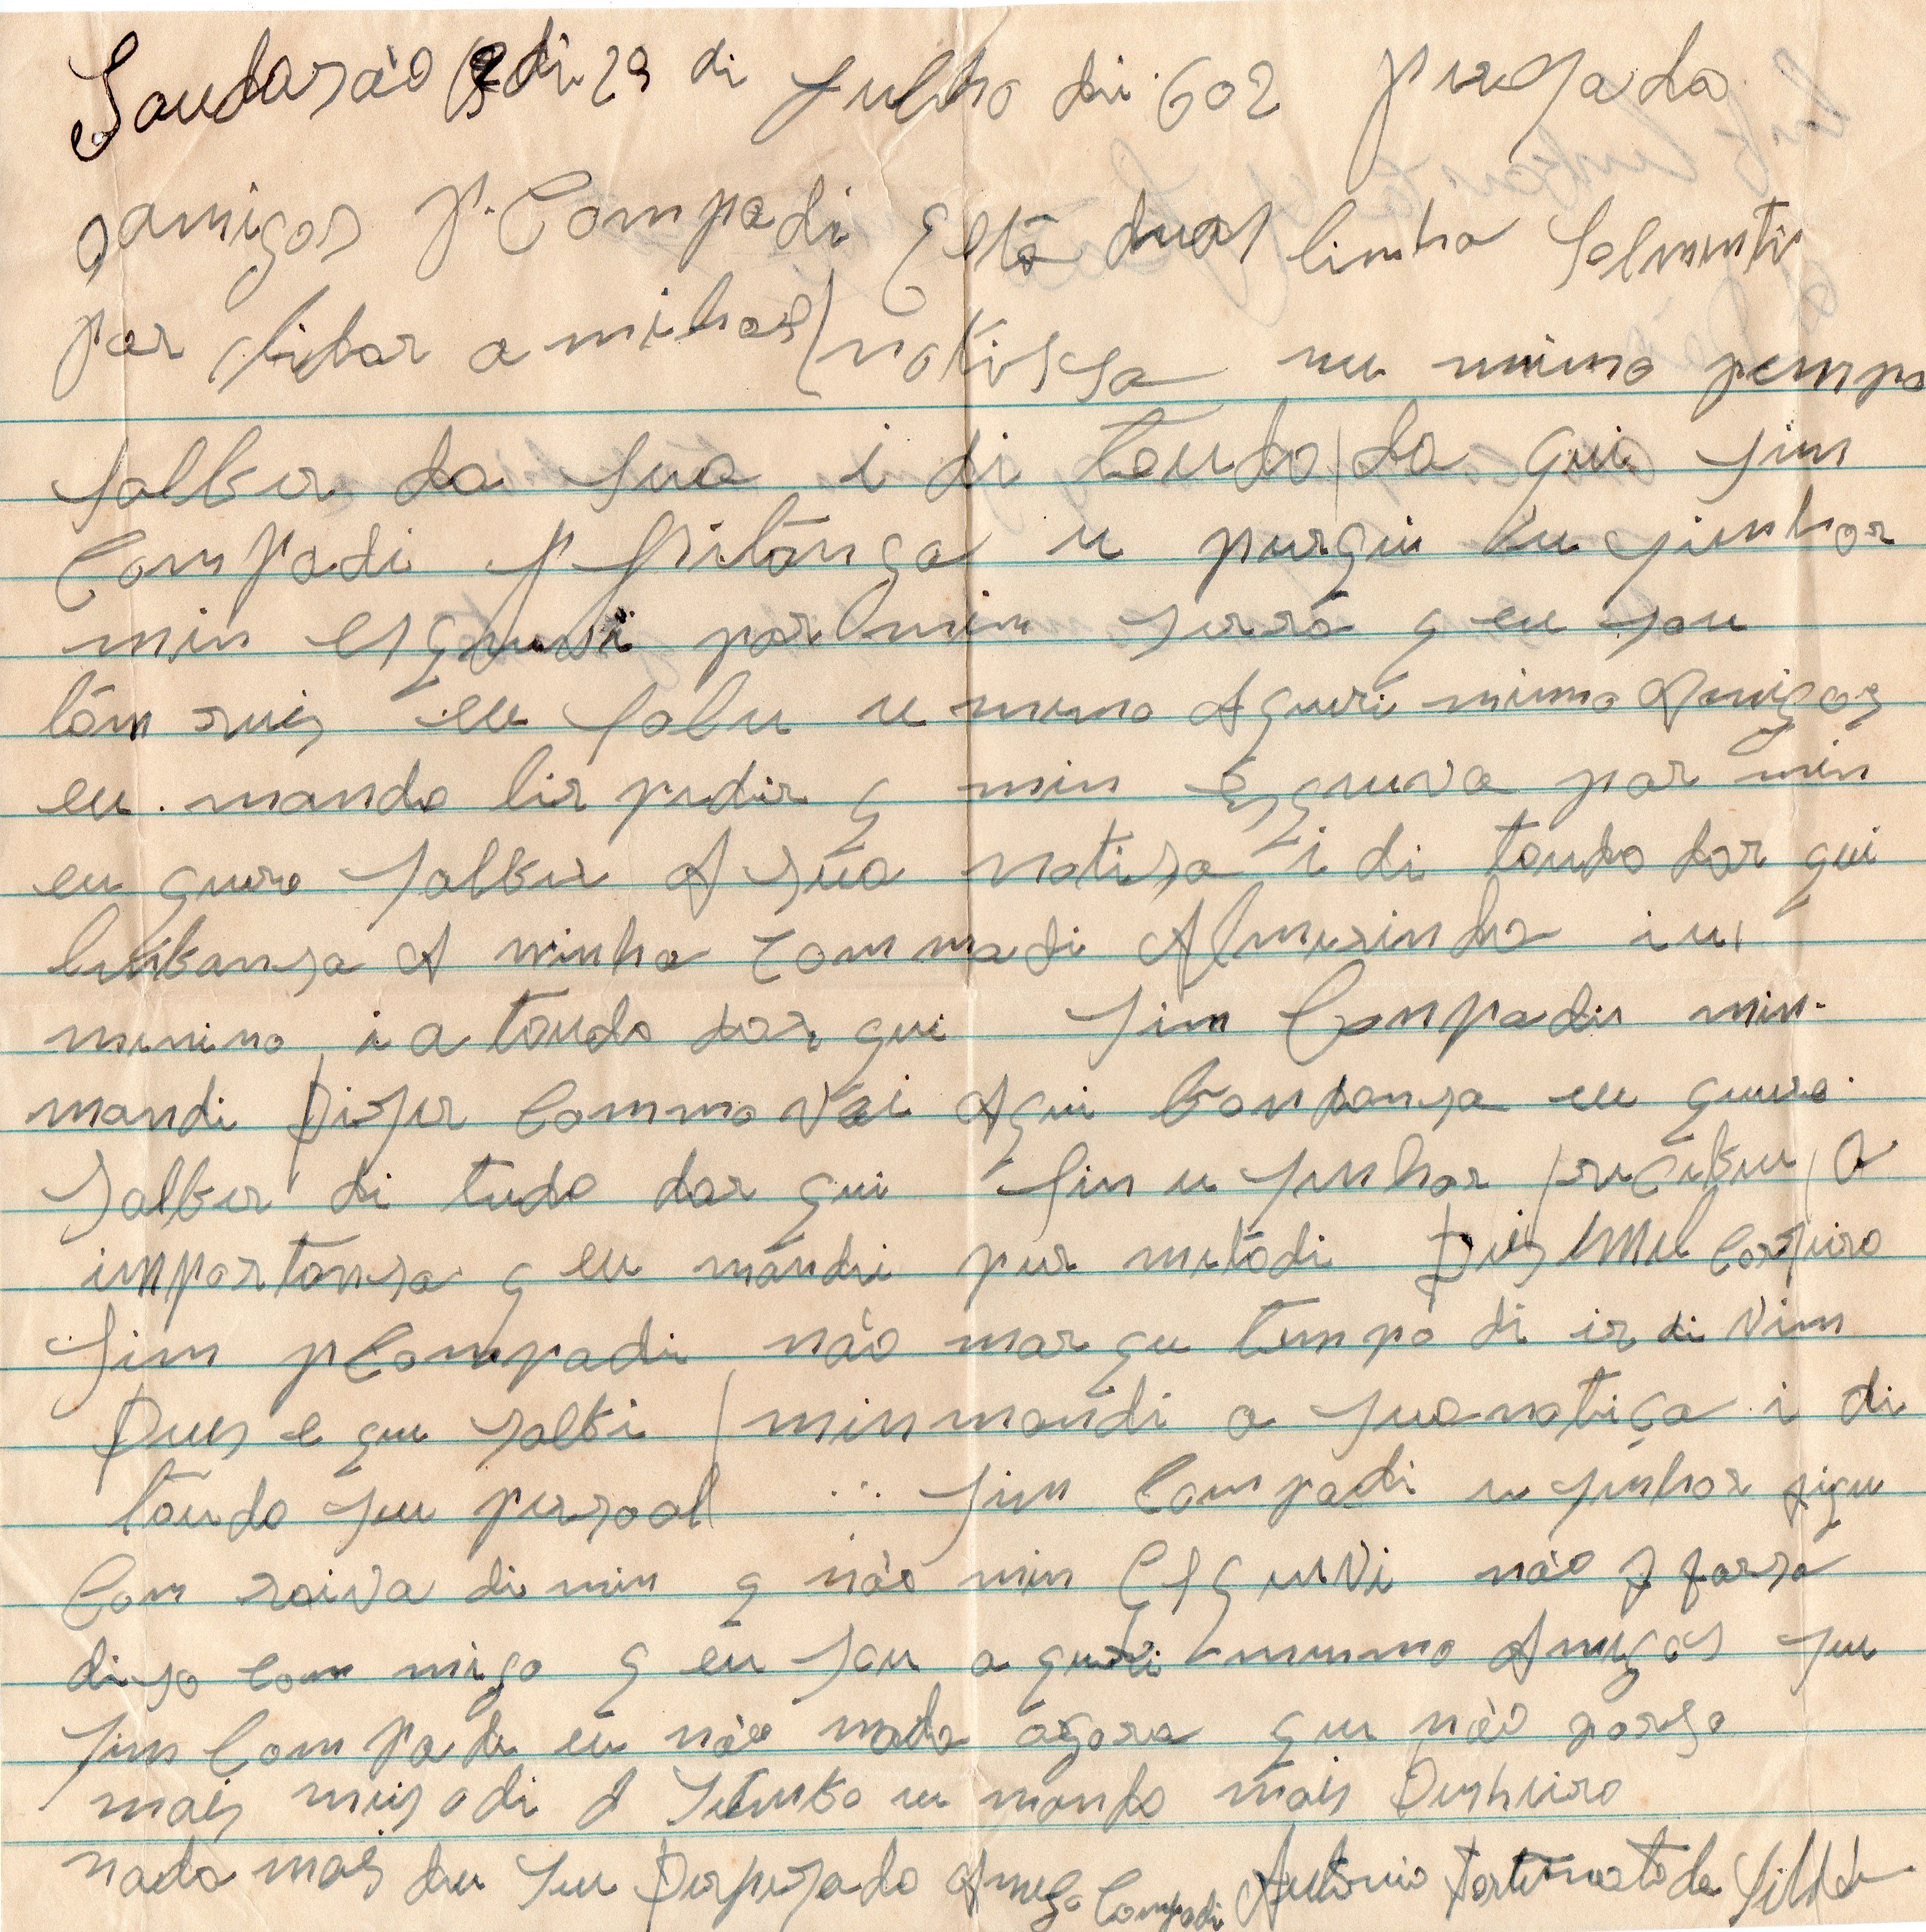 Saudasão di 29 di Julho di 602 Presado
amigos P. Compadi Esta duas linha Salmenti
par dar a minhas notissa nu mimo tempo
salber da sua i di toudo da qui Sim
Compadi P Pitanga u purqui u sinhor
min esqueuvi par mim serrá q eu sou
tóm ruis eu sou u memo Aqueri mimo Amigos
eu mando lir pidir q min Esqruva par min
eu quero salber A sua notisa i di toudo dar qui
lenbransa A minha commadi Almirinda i us
minino i a toudo dar qui Sim Conpadi min
mandi Diser Commo vai Aqui bondansa eu quero
Salber di tudo dar qui Sim u sinhor recebeu a
inpartansa q eu mandei pur metodi Dies Mil Corseiro
Sim P Compadi não marqu tempo di ir di vim
Dues e qui salbi min mandi a sua notiça i di
toudo seu persoal ... Sim Compadi u sinhor fiqu
Com raiva di min q não min Esqruvi não q farsa
diso com migo q eu sou a queri mummo Amigos seu
Sim Compadi eu não mada agora qui não parso
mais meis di Setenbo eu mando mais Dinheiro
nada mais deu seu Desprezado Amigo Compadi Antonio Fortunato da Silva